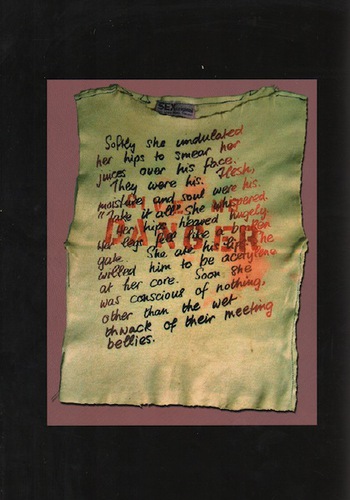 SEX
Softly she undulated
her hips to smear her
juices over his face.
They were his. Flesh,
moisture and soul were his.
"Take it all" she whispered.
Her hips heaved hugely.
Her legs felt like
gate. She ate his lip. She
willed him to be acetylene
at her core. Soon she
was conscious of nothing,
other than the wet
thwack of their meeting
bellies.
DANGER